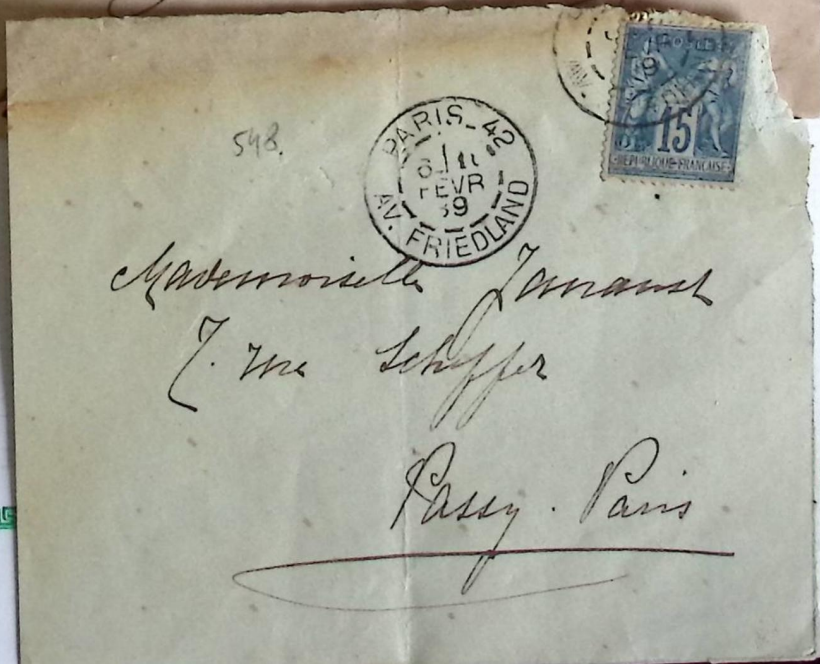 548.
PARIS_42
FEVR
AV. FRIEDLAND
15
REPUBLIQUE FRANCAISE
Mademoiselle
7. rue Scheffer
Passy. Paris